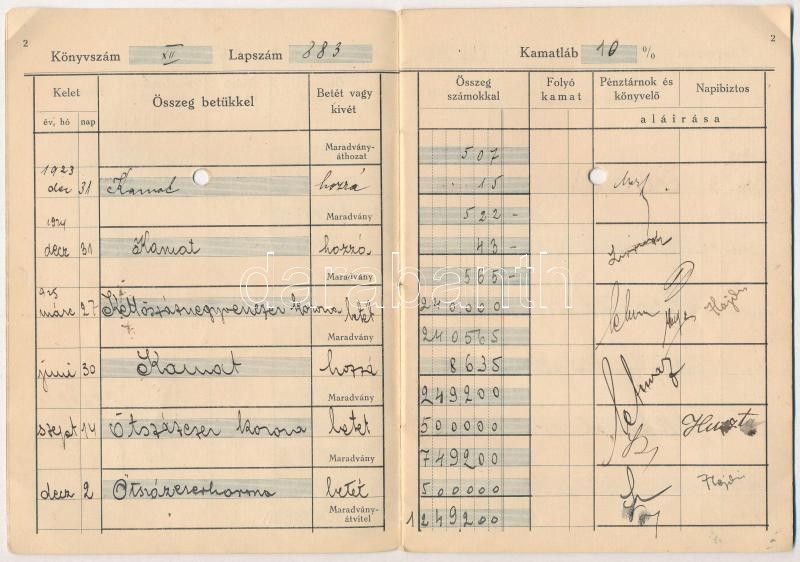 2
Könyvszám XII Lapszám 383
Kamatláb 10 %
2
Kelet
év, hó nap
Összeg betükkel
Betét vagy kivét
Összeg számokkal
Folyó kamat
Pénztárnok és könyvelő
Napibiztos
aláirása
Maradvány-áthozat 507
1923
dec 31 Kamat hozzá 15
Maradvány 522 -
1924
decz 31 Kamat hozzá 43 -
Maradvány 565 -
925
márc 27 Kettőszáznegyvenezer korona betét 240000 Hajdu
Maradvány 240565
juni 30 Kamat hozzá 8635
Maradvány 249200
szept 14 Ötszázezer korona betét 500000
Maradvány 749200
decz 2 Ötszázezerkorona betét 500000 Hajdu
Maradvány-átvitel 1249200
darabanth